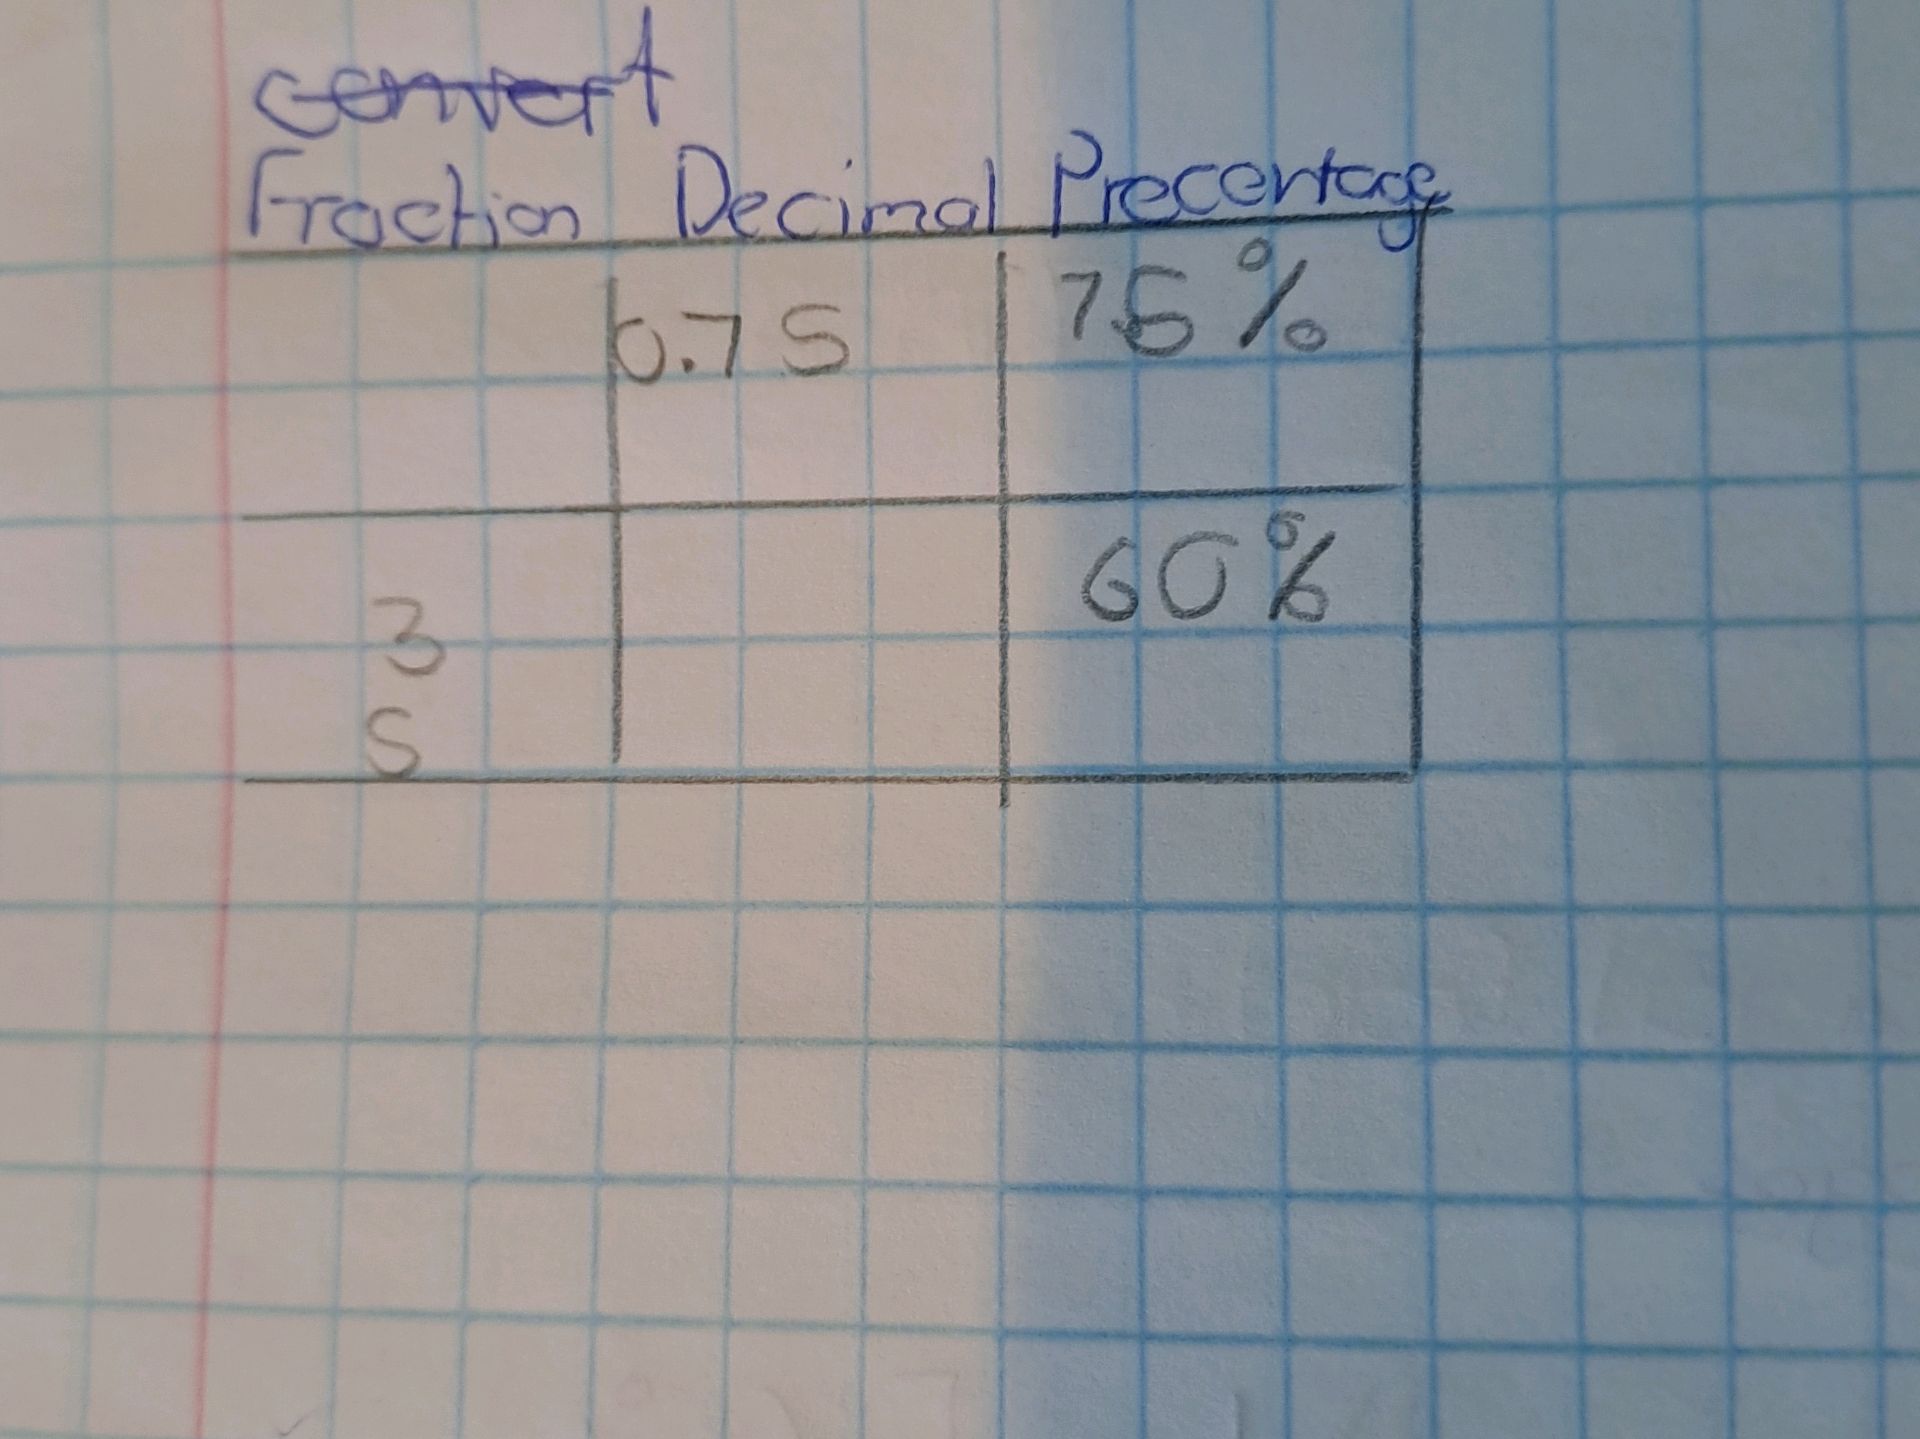 convert
Fraction Decimal Precentage
0.75 75%
60%
3
5